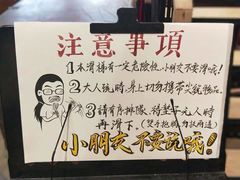 注意事項
1 本滑梯有一定危險性,小朋友不要滑哦!
2 大人玩時,身上切勿攜帶尖銳物品
3 請有序排隊,待 無人時
再滑下。(雙手抱胸 )
小朋友 不要玩哦!